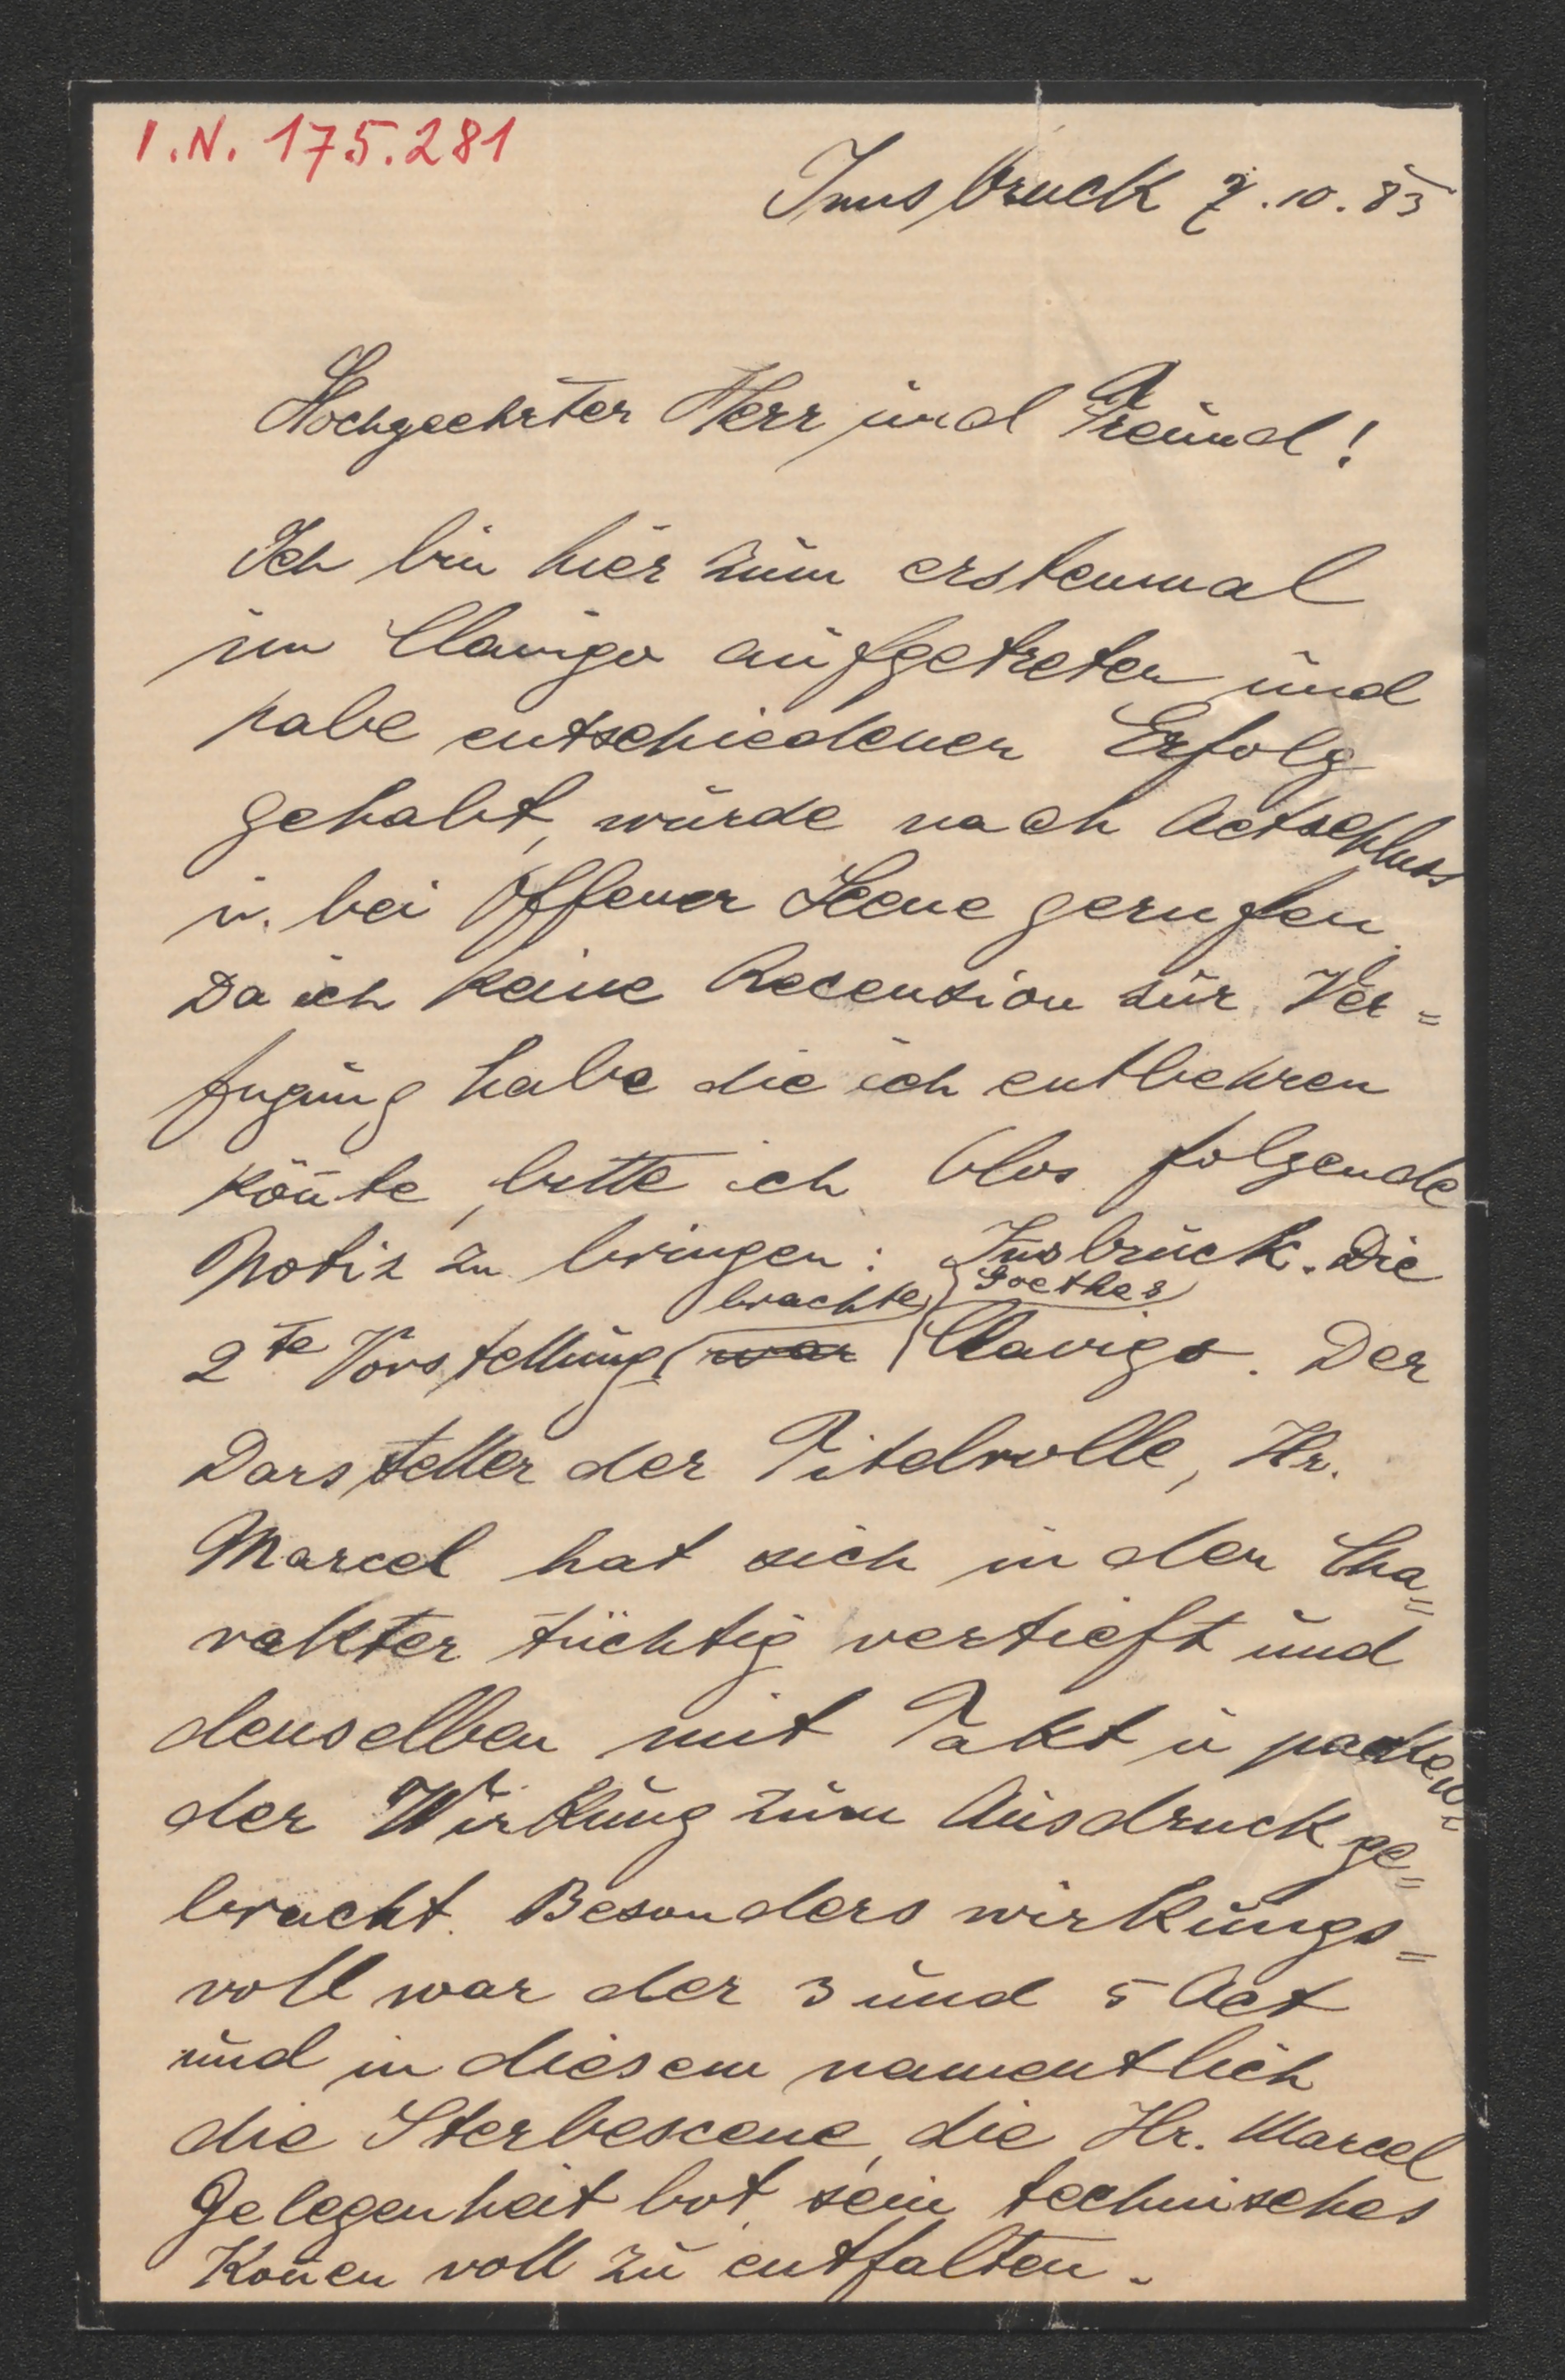 I.N. 175.281
Innsbruck 7.10.85
Hochgeehrter Herr und Freund!
Ich bin hier zum erstenmal
im Clavigo aufgetreten und
habe entschiedenen Erfolg
gehabt, wurde nach Actschluss
u. bei offener Scene gerufen.
Da ich keine Recension zur Ver=
fugung habe die ich entbehren
kön̄te, bitte ich blos folgende
Notiz zu bringen: Insbruck. Die
brachte Goethes
2te Vorstellung war Clavigo. Der
Darsteller der Titelrolle, Hr.
Marcel hat sich in den Cha=
rakter tüchtig vertieft und
denselben mit Takt u packen=
der Wirkung zum Ausdruck ge=
bracht. Besonders wirkungs=
voll war der 3 und 5 Act
und in diesem namentlich
die Sterbescene, die Hr. Marcel
Gelegenheit bot sein technisches
Kön̄en voll zu entfalten.